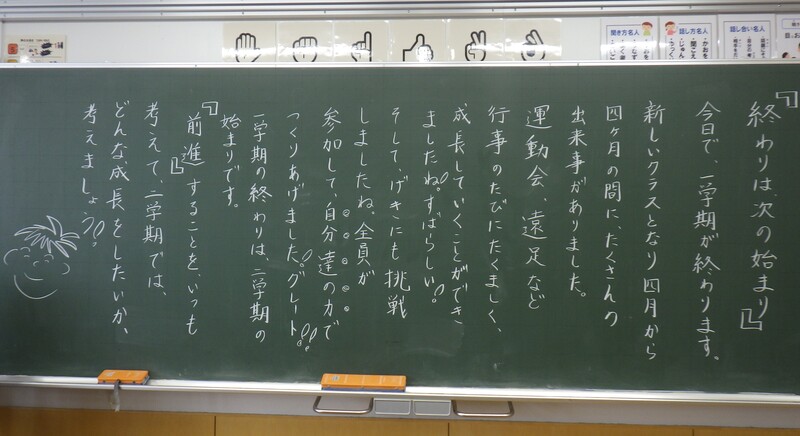 『終わりは、次の始まり』
今日で、一学期が終わります。
新しいクラスとなり四月から
四ヶ月の間に、たくさんの
出来事がありました。
運動会、遠足など
行事のたびにたくましく、
成長していくことができ
ましたね。すばらしい!!。
そして、げきにも挑戦
しましたね。全員が
参加して、自分達の力で
つくりあげました。グレート!!!
一学期の終わりは、二学期の
始まりです。
『前進』することを、いつも
考えて、二学期では、
どんな成長をしたいか、
考えましょう!!。
聞き方名人
話し方名人
話し合い名人